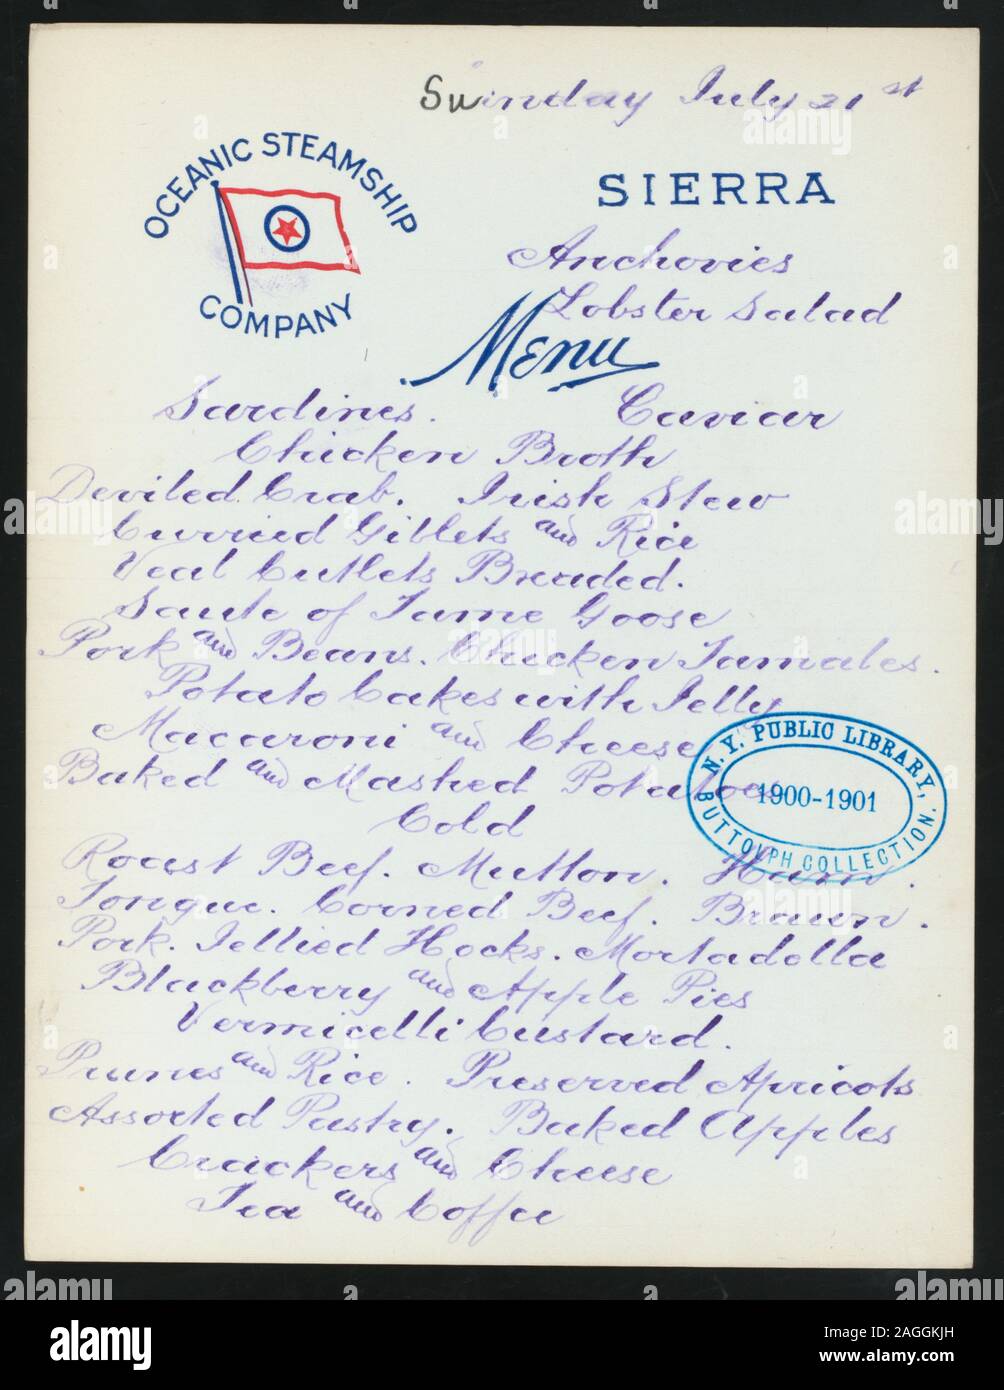 Sunday July 21st
OCEANIC STEAMSHIP
COMPANY
SIERRA
Anchovies
Lobster Salad
Menu
Sardines. Caviar
Chicken Broth
Deviled Crab. Irish Stew
Curried Giblets and Rice
Veal Cutlets Breaded.
Saute of Tame Goose
Pork and Beans. Chicken Tamales.
Potato Cakes with Jelly
Macaroni and Cheese
Baked and Mashed Potatoes
N.Y. PUBLIC LIBRARY,
1900-1901
BUTTOLPH COLLECTION.
Cold
Roast Beef. Mutton. Ham.
Tongue. Corned Beef. Brawn.
Pork. Jellied Hocks. Mortadella
Blackberry and Apple Pies
Vermicelli Custard.
Prunes and Rice. Preserved Apricots
Assorted Pastry. Baked Apples
Crackers and Cheese
Tea and Coffee
alamy
Image ID: 2AGGKJH
www.alamy.com